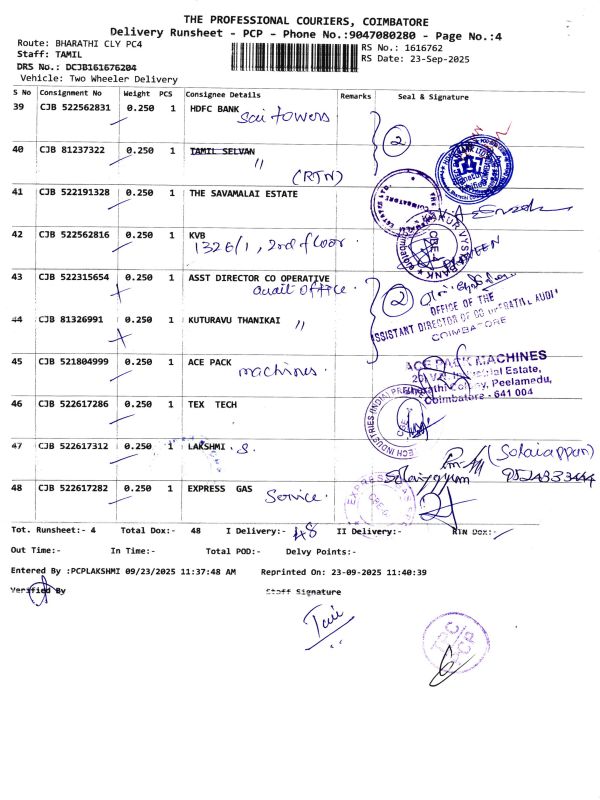 THE PROFESSIONAL COURIERS, COIMBATORE
Delivery Runsheet - PCP - Phone No.:9047080280 - Page No.:4
Route: BHARATHI CLY PC4
Staff: TAMIL
DRS No.: DCJB161676204
Vehicle: Two Wheeler Delivery
RS No.: 1616762
RS Date: 23-Sep-2025
S No Consignment No Weight PCS Consignee Details Remarks Seal & Signature
39 CJB 522562831 0.250 1 HDFC BANK
Sai towers
2
40 CJB 81237322 0.250 1 TAMIL SELVAN
"
(RTN)
41 CJB 522191328 0.250 1 THE SAVAMALAI ESTATE
42 CJB 522562816 0.250 1 KVB
1326/1, 2nd floor
43 CJB 522315654 0.250 1 ASST DIRECTOR CO OPERATIVE
audit office.
2
OFFICE OF THE
ASSISTANT DIRECTOR OF CO OPERATIVE AUDIT
COIMBATORE
44 CJB 81326991 0.250 1 KUTURAVU THANIKAI "
45 CJB 521804999 0.250 1 ACE PACK
machines.
ACE PACK MACHINES
Industrial Estate,
Peelamedu,
Coimbatore - 641 004
46 CJB 522617286 0.250 1 TEX TECH
47 CJB 522617312 0.250 1 LAKSHMI . S.
(Solaiappan)
48 CJB 522617282 0.250 1 EXPRESS GAS
Service.
Tot. Runsheet:- 4 Total Dox:- 48 I Delivery:- 48 II Delivery:- RTN Dox:-
Out Time:- In Time:- Total POD:- Delvy Points:-
Entered By :PCPLAKSHMI 09/23/2025 11:37:48 AM Reprinted On: 23-09-2025 11:40:39
Verified By Staff Signature